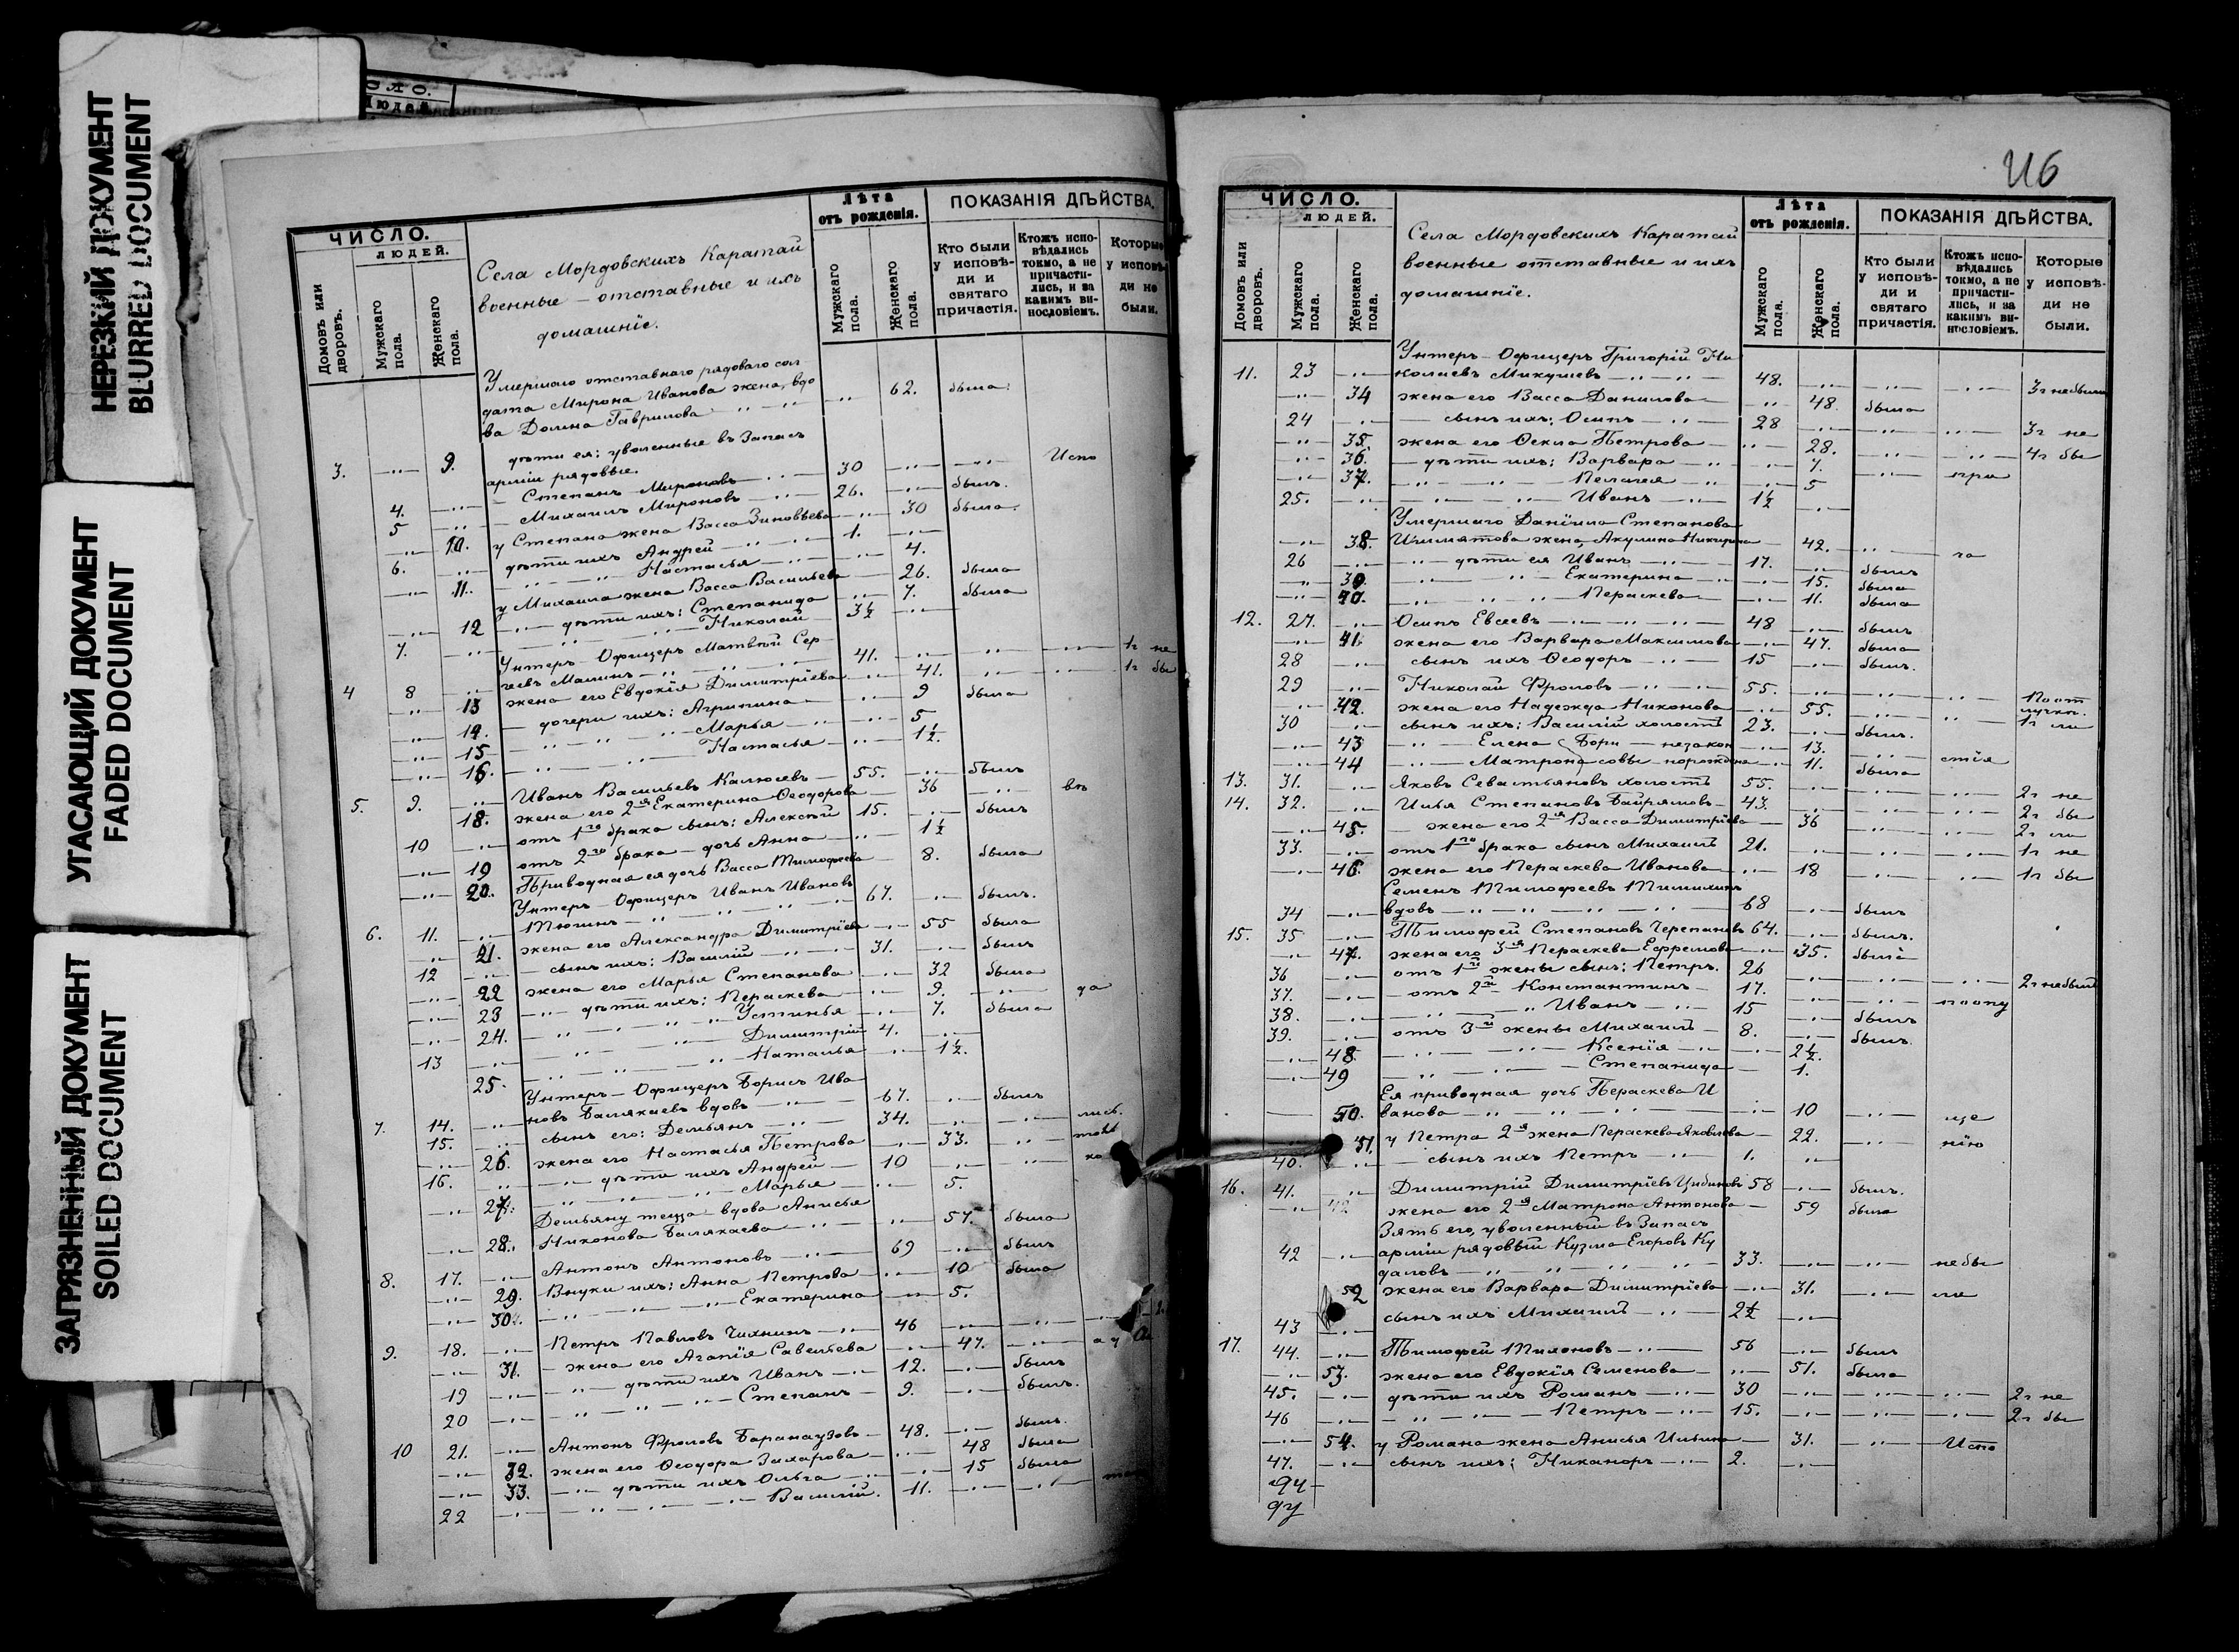 НЕРЕЗКИЙ ДОКУМЕНТ
BLURRED DOCUMENT
УГАСАЮЩИЙ ДОКУМЕНТ
FADED DOCUMENT
ЗАГРЯЗНЕННЫЙ ДОКУМЕНТ
SOILED DOCUMENT
ЧИСЛО.
ЛЮДЕЙ.
Домовъ или дворовъ.
Мужскаго пола.
Женскаго пола.
Села Мордовскихъ Каратай
военные – отставные и ихъ
домашніе.
Лѣта
отъ рожденія.
Мужскаго пола.
Женскаго пола.
ПОКАЗАНІЯ ДѢЙСТВА.
Кто были у исповѣди и святаго причастія.
Ктожъ исповѣдались токмо, а не причастились, и за какимъ винословіемъ.
Которые у исповѣди не были.
Умершаго отставнаго рядоваго сол
дата Мирона Иванова жена, вдо
3. 9. ва Домна Гаврилова 62. была
дѣти ея: уволенные въ Запасъ
арміи рядовые.
4. Степанъ Мироновъ 30 Испо
5 Михаилъ Мироновъ 26. былъ.
10. у Степана жена Васса Зиновьева 30 была.
6. дѣти ихъ Андрей 1.
11. Настасья 4.
у Михаила жена Васса Васильева 26. была
12 дѣти ихъ: Степанида 7. была
7. Николай 3½
Унтеръ – Офицеръ Матвѣй Сер
4 8 геевъ Малинъ 41. 1г не
13 жена его Евдокія Димитріева 41. 1г бы
14. дочери ихъ: Агрипина 9 была
15 Марья 5
16. Настасья 1½.
5. 9. Иванъ Васильевъ Калюевъ 55. былъ
18. жена его 2я Екатерина Ѳеодорова 36 въ
10 отъ 1го брака сынъ: Алексѣй 15. былъ
19 отъ 2го брака – дочь Анна 1½
20. Приводная ея дочь Васса Тимофеева 8. была
Унтеръ – Офицеръ Иванъ Ивановъ
6. 11. Тюгинъ 67. былъ.
21. жена его Александра Димитріева 55 была
12 сынъ ихъ: Василій 31. былъ
22 жена его Марья Степанова 32 была
23 дѣти ихъ: Пераскева 9. да
24. Устинья 7. была
13 Димитрій 4.
25. Наталья 1½.
Унтеръ – Офицеръ Борисъ Ива
7. 14. новъ Балякаевъ вдовъ 67. былъ
15. сынъ его: Демьянъ 34. лись.
26. жена его Настасья Петрова 33.
16. дѣти ихъ Андрей 10
27. Марья 5.
Демьяну теща вдова Анисья
28. Никонова Балякаева 57. была
8. 17. Антонъ Антоновъ 69 былъ
29. Внуки ихъ: Анна Петрова 10 была
30. Екатерина 5.
9. 18. Петръ Павловъ Чихнинъ 46
31. жена его Агапія Савельева 47.
19 дѣти ихъ Иванъ 12. былъ
20 Степанъ 9. былъ.
10 21. Антонъ Фроловъ Баранаузовъ 48. былъ.
32. жена его Ѳеодора Захарова 48 была
33. дѣти ихъ Ольга 15 была
22 Василій. 11.
ЧИСЛО.
ЛЮДЕЙ.
Домовъ или дворовъ.
Мужскаго пола.
Женскаго пола.
Села Мордовскихъ Каратай
военные отставные и ихъ
домашніе.
Лѣта
отъ рожденія.
Мужскаго пола.
Женскаго пола.
ПОКАЗАНІЯ ДѢЙСТВА.
Кто были у исповѣди и святаго причастія.
Ктожъ исповѣдались токмо, а не причастились, и за какимъ винословіемъ.
Которые у исповѣди не были.
Унтеръ – Офицеръ Григорій Ни
11. 23 колаевъ Микушевъ 48. 3г небыли
34 жена его Васса Данилова 48. была
24 сынъ ихъ: Осипъ 28 3г не
35. жена его Ѳекла Петрова 28. 4г бы
36. дѣти ихъ: Варвара 7. при
37. Пелагея 5
25. Иванъ 1½
Умершаго Даніила Степанова
38. жена Акулина 42. ча
26 дѣти ея Иванъ 17. былъ
39. Екатерина 15. была
40. Пераскева 11. была
12. 27. Осипъ Евсеевъ 48 былъ
41. жена его Варвара Максимова 47. была
28 сынъ ихъ Ѳеодоръ 15 былъ.
29 Николай Фроловъ 55. По от
42. жена его Надежда Никонова 55. лучкѣ.
30 сынъ ихъ: Василій холостъ 23. былъ. 1г ли
43 Елена Бори незакон 13. стія
44 Матрона совы норождена 11. была
13. 31. Яковъ Севастьяновъ холостъ 55. 2г не
14. 32. Илья Степановъ Байрямовъ 43. 2г бы
45. жена его 2я Васса Димитріева 36 2г ли
33. отъ 1го брака сынъ Михаилъ 21. 1г не
46. жена его Пераскева Иванова 18 1г бы
Семенъ Тимофеевъ Тимихинъ
34 вдовъ 68 былъ
15. 35 Тимофей Степановъ Черепановъ 64. былъ.
47. жена его 3я Пераскева Ефремова 35. была
36 отъ 1й жены сынъ: Петръ. 26 2г небылъ
37. отъ 2й Константинъ 17.
38. Иванъ 15 былъ
39. отъ 3й жены Михаилъ 8. былъ.
48. Ксенія 2½.
49 Степанида 1.
Ея приводная дочь Пераскева И
50. ванова 10 ще
51. у Петра 2я жена Пераскева Яковлева 22. нію
40. сынъ ихъ Петръ 1.
16. 41. Димитрій Димитріевъ Цибиковъ 58 былъ.
42 жена его 2я Матрона Антонова 59 была
Зять его, уволенный въ Запасъ
42 арміи рядовый Кузма Егоровъ Ку
даловъ 33. небы
52 жена его Варвара Димитріева 31. ли
43 сынъ ихъ Михаилъ 2½
17. 44. Тимофей Тихоновъ 56 былъ
53. жена его Евдокія Семенова 51. была
45. дѣти ихъ Романъ 30 2г не
46 Петръ 15. 2г бы
54. у Романа жена Анисья Ильина 31. Испо
47. сынъ ихъ: Никаноръ 2.